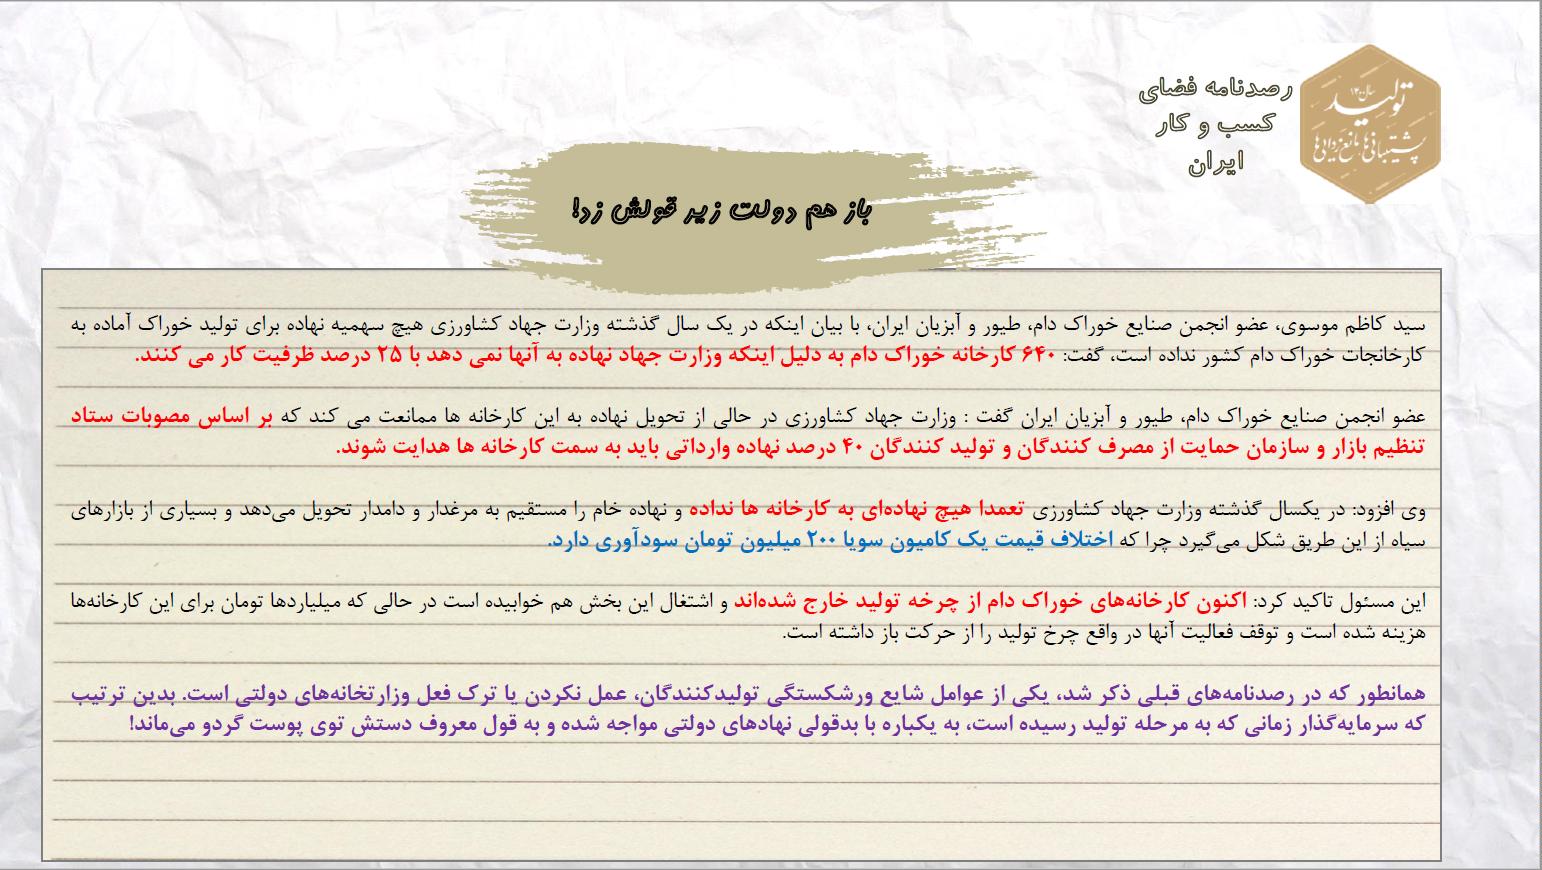 سال ۱۴۰۰
تولید
پشتیبانی‌ها، مانع‌زدایی‌ها
رصدنامه فضای
کسب و کار
ایران
باز هم دولت زیر قولش زد!
سید کاظم موسوی، عضو انجمن صنایع خوراک دام، طیور و آبزیان ایران، با بیان اینکه در یک سال گذشته وزارت جهاد کشاورزی هیچ سهمیه نهاده برای تولید خوراک آماده به
کارخانجات خوراک دام کشور نداده است، گفت: ۶۴۰ کارخانه خوراک دام به دلیل اینکه وزارت جهاد نهاده به آنها نمی دهد با ۲۵ درصد ظرفیت کار می کنند.
عضو انجمن صنایع خوراک دام، طیور و آبزیان ایران گفت : وزارت جهاد کشاورزی در حالی از تحویل نهاده به این کارخانه ها ممانعت می کند که بر اساس مصوبات ستاد
تنظیم بازار و سازمان حمایت از مصرف کنندگان و تولید کنندگان ۴۰ درصد نهاده وارداتی باید به سمت کارخانه ها هدایت شوند.
وی افزود: در یکسال گذشته وزارت جهاد کشاورزی تعمدا هیچ نهاده‌ای به کارخانه ها نداده و نهاده خام را مستقیم به مرغدار و دامدار تحویل می‌دهد و بسیاری از بازارهای
سیاه از این طریق شکل می‌گیرد چرا که اختلاف قیمت یک کامیون سویا ۲۰۰ میلیون تومان سودآوری دارد.
این مسئول تاکید کرد: اکنون کارخانه‌های خوراک دام از چرخه تولید خارج شده‌اند و اشتغال این بخش هم خوابیده است در حالی که میلیاردها تومان برای این کارخانه‌ها
هزینه شده است و توقف فعالیت آنها در واقع چرخ تولید را از حرکت باز داشته است.
همانطور که در رصدنامه‌های قبلی ذکر شد، یکی از عوامل شایع ورشکستگی تولیدکنندگان، عمل نکردن یا ترک فعل وزارتخانه‌های دولتی است. بدین ترتیب
که سرمایه‌گذار زمانی که به مرحله تولید رسیده است، به یکباره با بدقولی نهادهای دولتی مواجه شده و به قول معروف دستش توی پوست گردو می‌ماند!